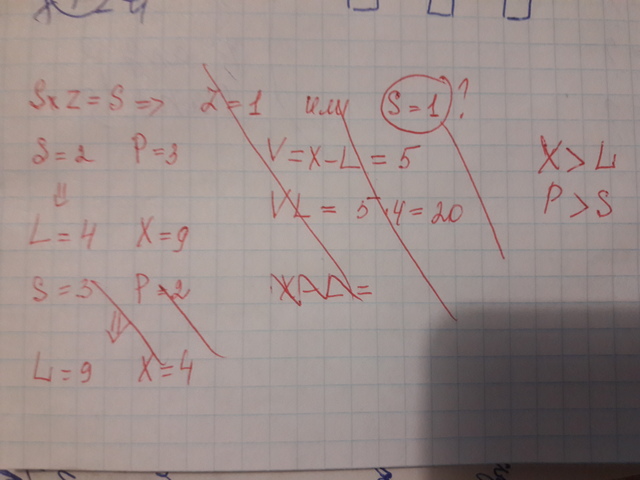 S×Z=S => Z=1 или S=1?
S=2 P=3 V=X-L=5 X>L
⇓ VL=5·4=20 P>S
L=4 X=9
S=3 P=2
⇓
L=9 X=4